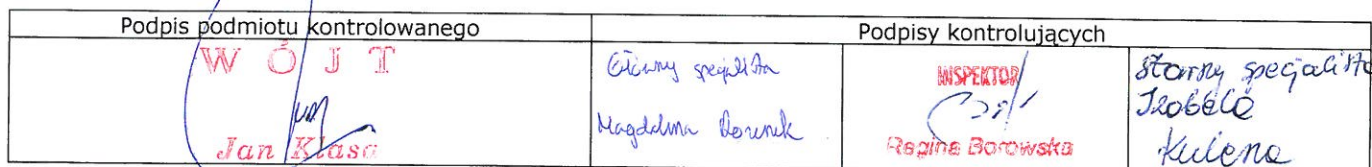 Podpis podmiotu kontrolowanego
Podpisy kontrolujących
WÓJT
Jan Klasa
Główny specjalista
Magdalena
INSPEKTOR
Regina Borowska
Starszy specjalista
Izabela
Kulena